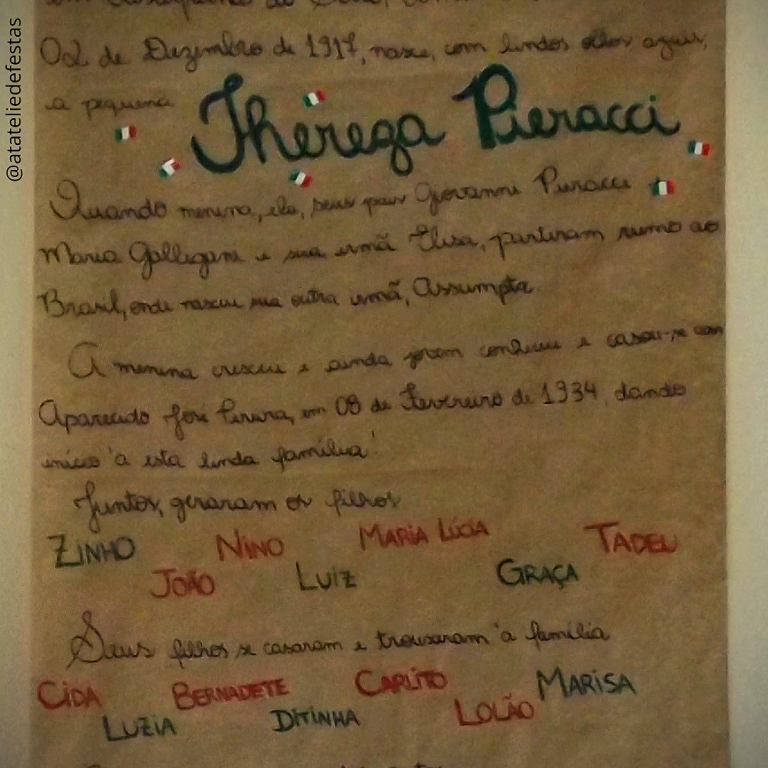 02 de Dezembro de 1917, nasce, com lindos olhos azuis,
a pequena
Thereza Pieracci
Quando menina, ela, seus pais Giovanni Pieracci
Maria Gallegani e sua irmã Elisa, partiram rumo ao
Brasil, onde nasceu sua outra irmã, Assumpta.
A menina cresceu e ainda jovem conheceu e casou-se com
Aparecido José Pereira, em 08 de Fevereiro de 1934, dando
início à esta linda família!
Juntos, geraram os filhos
ZINHO NINO MARIA LÚCIA TADEU
JOÃO LUIZ GRAÇA
Seus filhos se casaram e trouxeram à família
CIDA BERNADETE CARLITO MARISA
LUZIA DITINHA LOLÃO
@atateliedefestas